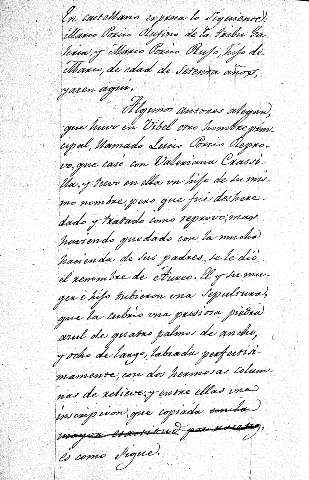 En castellano expresa lo siguiente:
Marco Porcio Rufino de la tribu Ga-
leria, y Marco Porcio Rufo, hijo de
Marco, de edad de setenta años,
yacen aqui.
Algunos autores alegan,
que huvo en Vibel otro hombre prin-
cipal, llamado Lucio Porcio Reprovo,
vo, que casó con Valeriana Crassi-
lla, y tuvo en ella un hijo de su mis-
mo nombre, pero que fué deshere-
dado y tratado como reprovo; mas
haviendo quedado con la mucha
hacienda de sus padres, se le dió
el renombre de Aureo. El y su mu-
ger é hijo tubieron una sepultura,
que la cubria una presiosa piedra
azul de quatro palmos de ancho,
y ocho de largo, labrada perfectisi-
mamente, con dos hermosas colum-
nas de relieve, y entre ellas una
inscripcion, que copiada con la
mayor exactitud por nosotros,
es como sigue.